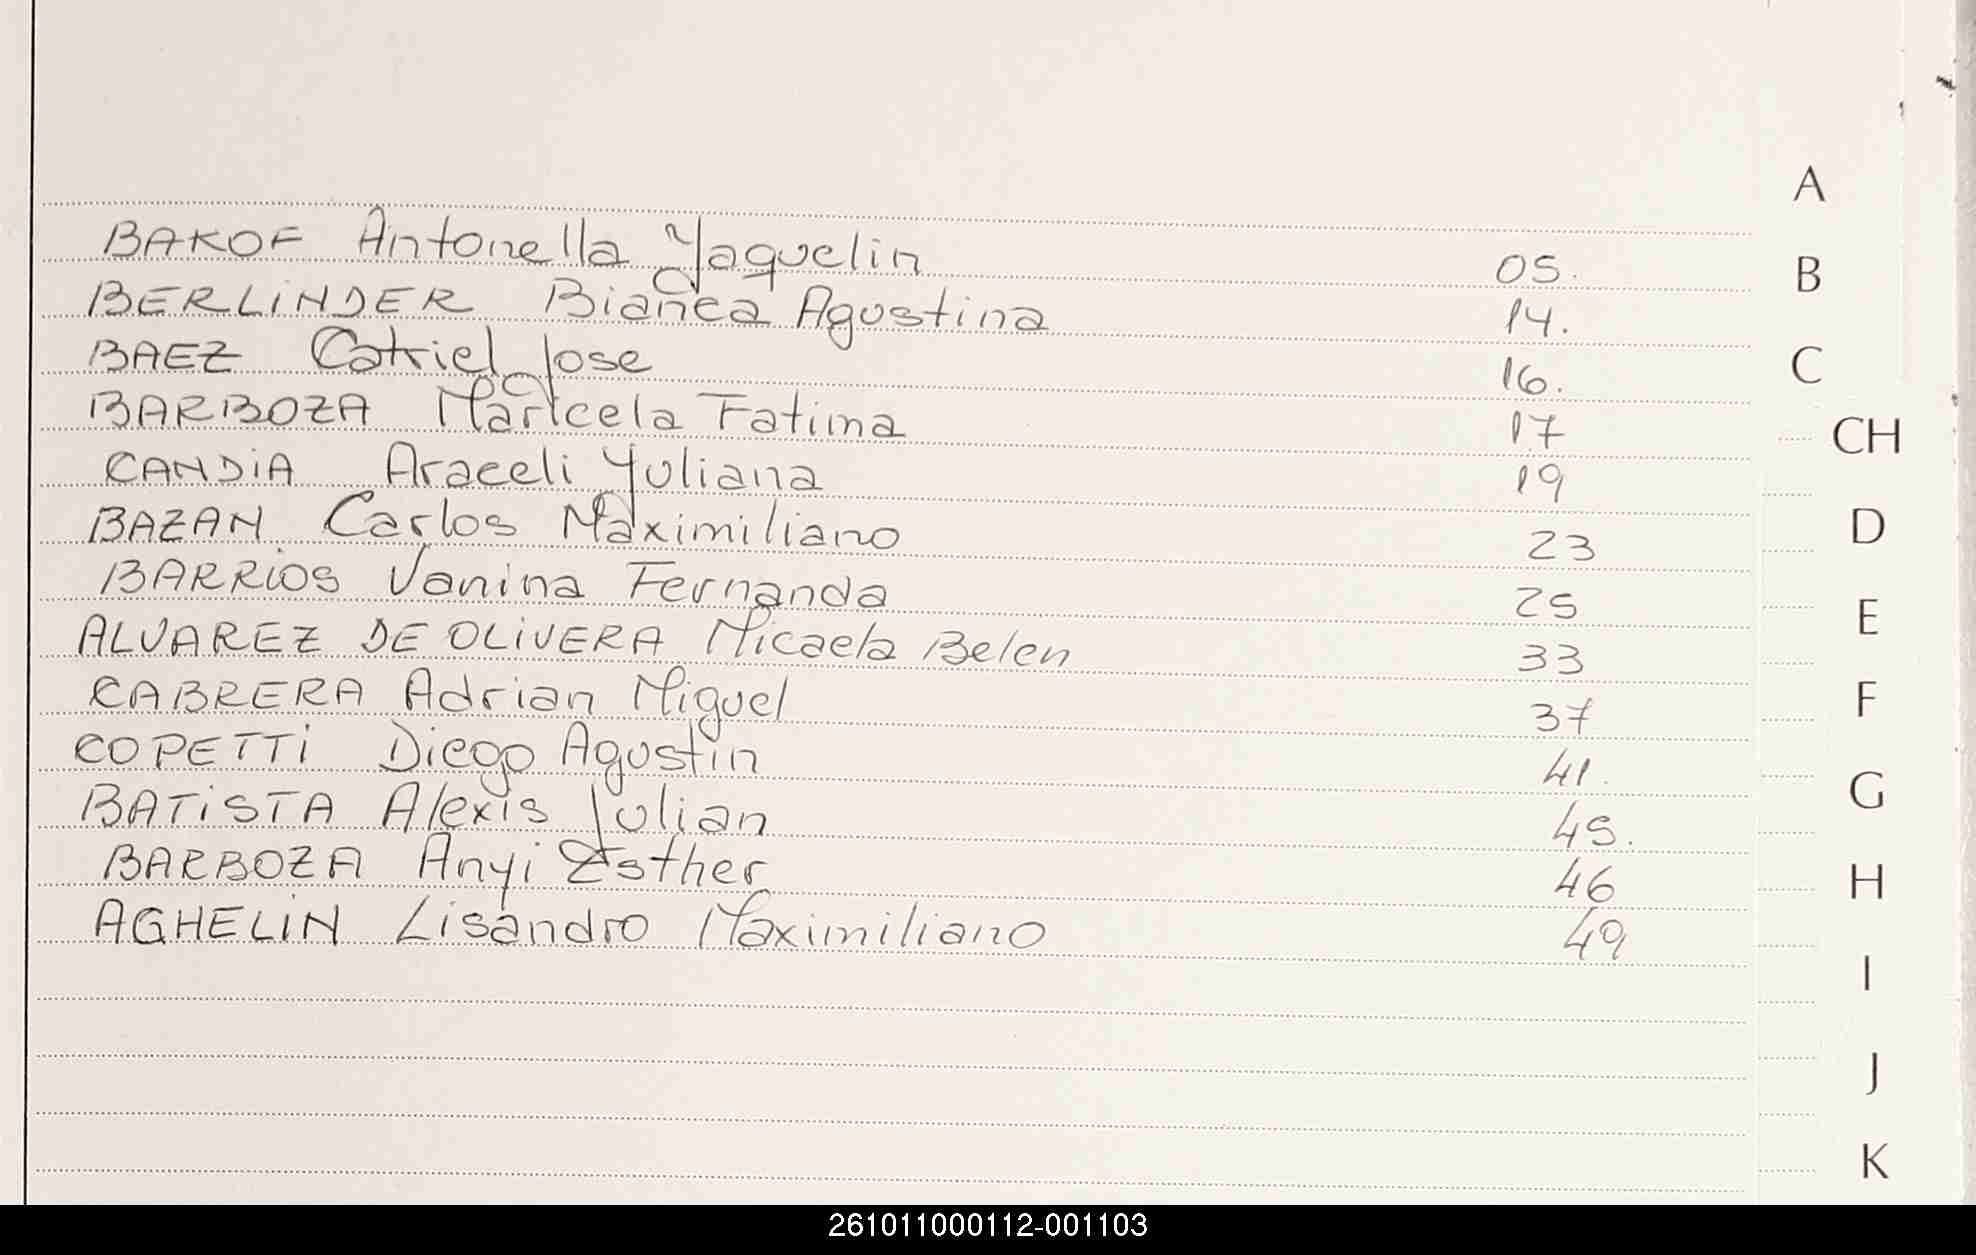 A
BAKOF Antonella Yaquelin 05.
B
BERLINDER Bianca Agustina 14.
BAEZ Catriel Jose 16.
C
BARBOZA Maricela Fatima 17
CH
CANDIA Araceli Yuliana 19
BAZAN Carlos Maximiliano 23
D
BARRIOS Vanina Fernanda 25
E
ALVAREZ DE OLIVERA Micaela Belen 33
CABRERA Adrian Miguel 37
F
COPETTI Diego Agustin 41.
G
BATISTA Alexis Julian 45.
BARBOZA Anyi Esther 46
H
AGHELIN Lisandro Maximiliano 49
I
J
K
261011000112-001103